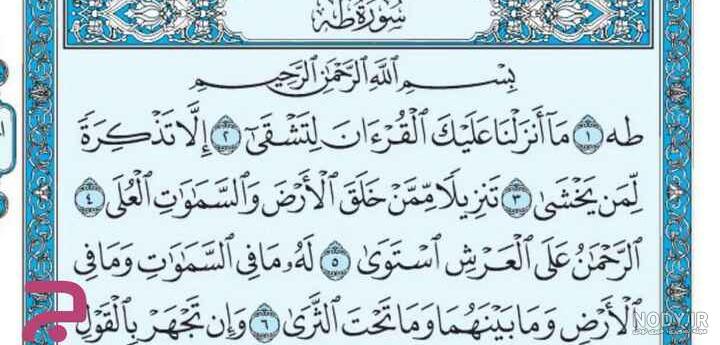 سُورَةُ طه
بِسْمِ ٱللَّهِ ٱلرَّحْمَٰنِ ٱلرَّحِيمِ
طه ١ مَآ أَنزَلْنَا عَلَيْكَ ٱلْقُرْءَانَ لِتَشْقَىٰٓ ٢ إِلَّا تَذْكِرَةً
لِّمَن يَخْشَىٰ ٣ تَنزِيلًا مِّمَّنْ خَلَقَ ٱلْأَرْضَ وَٱلسَّمَٰوَٰتِ ٱلْعُلَى ٤
ٱلرَّحْمَٰنُ عَلَى ٱلْعَرْشِ ٱسْتَوَىٰ ٥ لَهُۥ مَا فِي ٱلسَّمَٰوَٰتِ وَمَا فِي
ٱلْأَرْضِ وَمَا بَيْنَهُمَا وَمَا تَحْتَ ٱلثَّرَىٰ ٦ وَإِن تَجْهَرْ بِٱلْقَوْلِ
NODY.IR